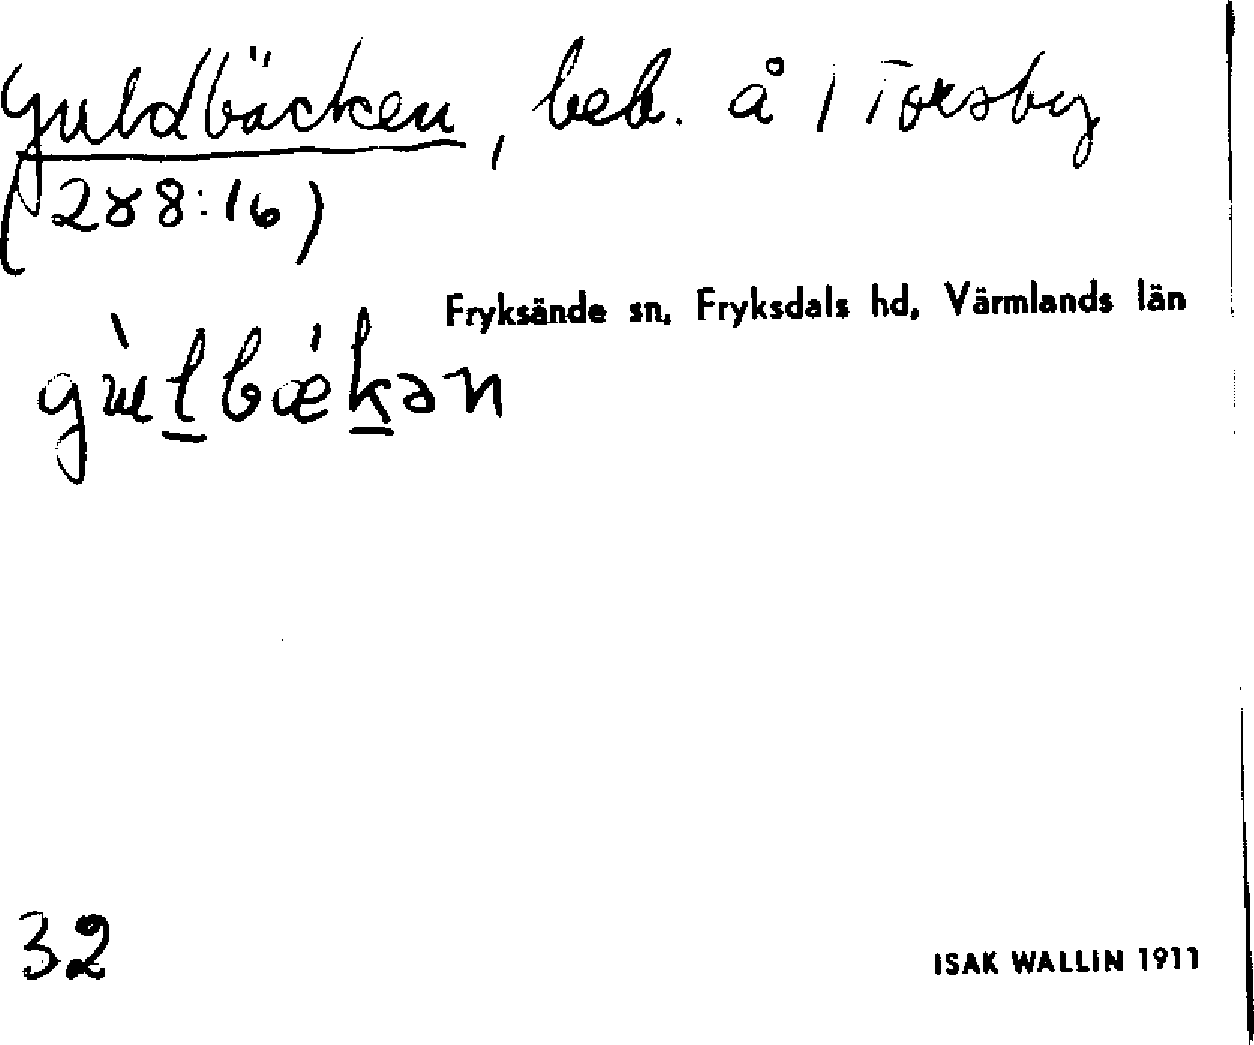 Guldbäcken, beb. å 1 Torsby
(288:16)
Fryksände sn, Fryksdals hd, Värmlands län
gùlbǽkən
32
ISAK WALLIN 1911